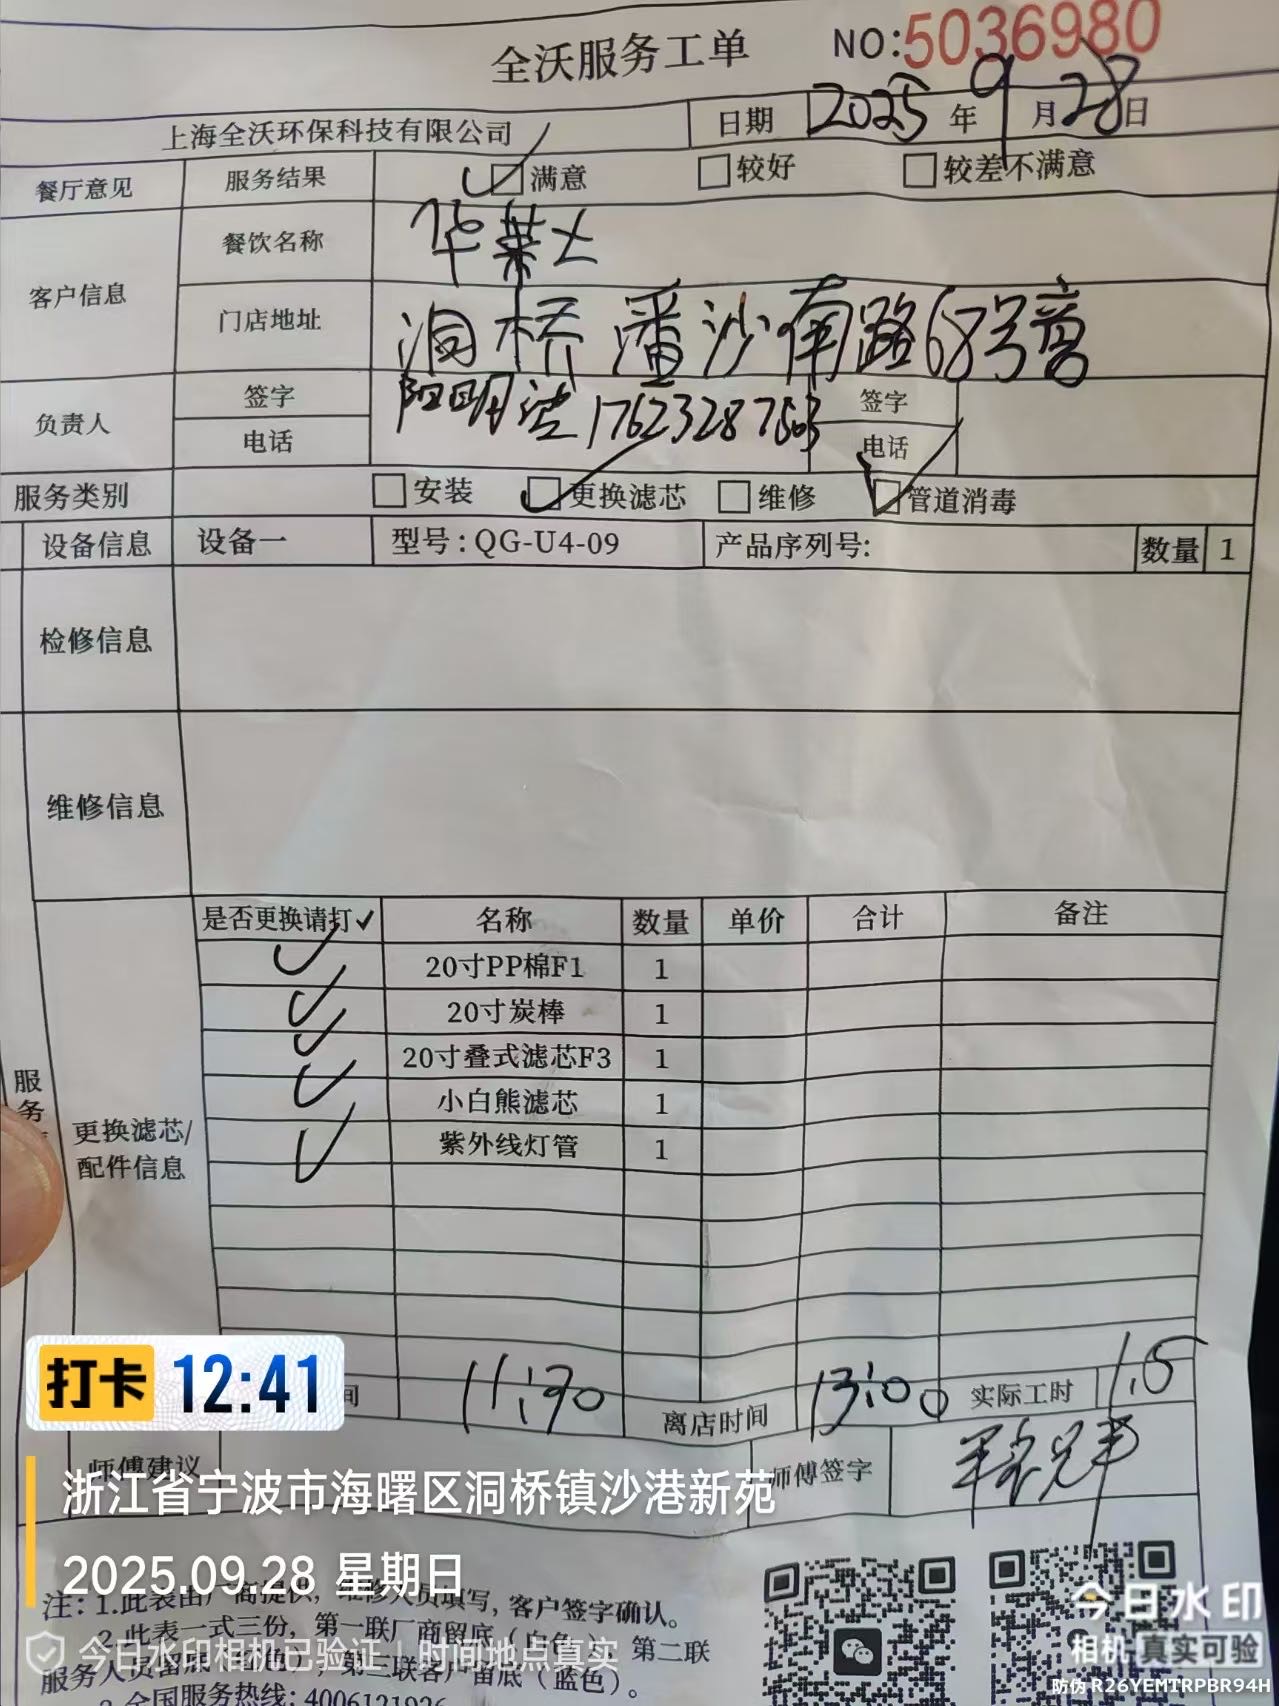 全沃服务工单 NO:5036980
上海全沃环保科技有限公司 日期 2025年9月28日
餐厅意见 服务结果 满意 较好 较差不满意
客户信息 餐饮名称 华莱士
门店地址 洞桥潘沙南路68号
负责人 签字 签字
电话 电话
阳明 1762328
服务类别 安装 更换滤芯 维修 管道消毒
设备信息 设备一 型号:QG-U4-09 产品序列号: 数量 1
检修信息
维修信息
是否更换请打✓ 名称 数量 单价 合计 备注
✓ 20寸PP棉F1 1
✓ 20寸炭棒 1
✓ 20寸叠式滤芯F3 1
✓ 小白熊滤芯 1
✓ 紫外线灯管 1
服务
更换滤芯/
配件信息
间 11:30 离店时间 13:00 实际工时 1.5
师傅建议 师傅签字
打卡 12:41
浙江省宁波市海曙区洞桥镇沙港新苑
2025.09.28 星期日
注: 1.此表由厂商提供, 维修人员填写, 客户签字确认。
2.此表一式三份, 第一联厂商留底(白色), 第二联
服务人员留底, 第三联客户留底(蓝色)。
3.全国服务热线: 4006121926
今日水印相机已验证 时间地点真实
今日水印
相机 真实可验
防伪 R26YEMTRPBR94H